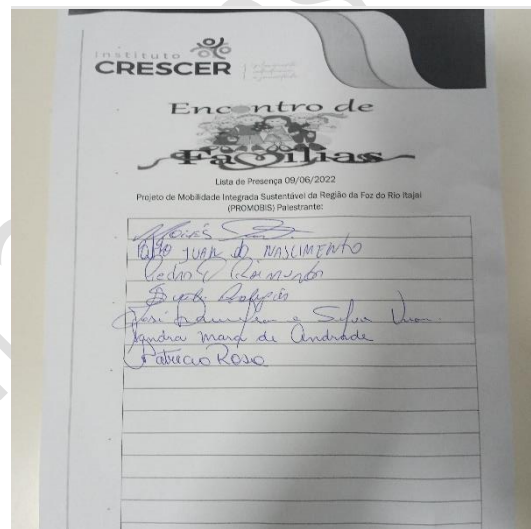 instituto
CRESCER
Encontro de
Famílias
Lista de Presença 09/06/2022
Projeto de Mobilidade Integrada Sustentável da Região da Foz do Rio Itajaí
(PROMOBIS) Palestrante:
Moisés
João JUAN do NASCIMENTO
Pedro V Raimundo
Silva
Sandra Mara de Andrade
Patricio Roso